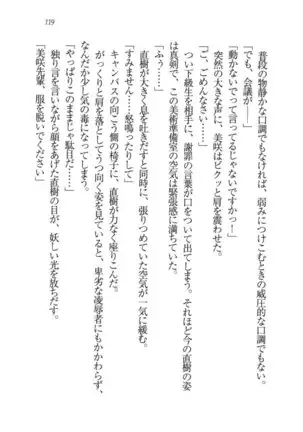 129
普段の物静かな口調でもなければ、弱みにつけこむときの威圧的な口調でもない。
「でも、会議が……」
「動かないでって言ってるじゃないですかっ！」
突然の大きな声に、美咲はビクッと肩を震わせた。
「ご、ごめんなさい……」
つい下級生を相手に、謝罪の言葉が口を出てしまう。それほど今の直樹の姿
は真剣で、この美術準備室の空気は緊張感に満ちていた。
「ふぅ……」
直樹が大きく息を吐きだすと同時に、張りつめていた空気が一気に緩む。
「すみません……怒鳴ったりして」
キャンバスの向こう側の椅子に、直樹が力なく座りこんだ。
がっくりと肩を落とした姿を見ていると、卑劣な凌辱者にもかかわらず、
なんだか少し気の毒になってしまう。
「やっぱりこのままじゃ駄目だ……」
独り言を言いながら顔をあげた直樹の目が、妖しい光を放ちだす。
「美咲先輩、服を脱いでください」